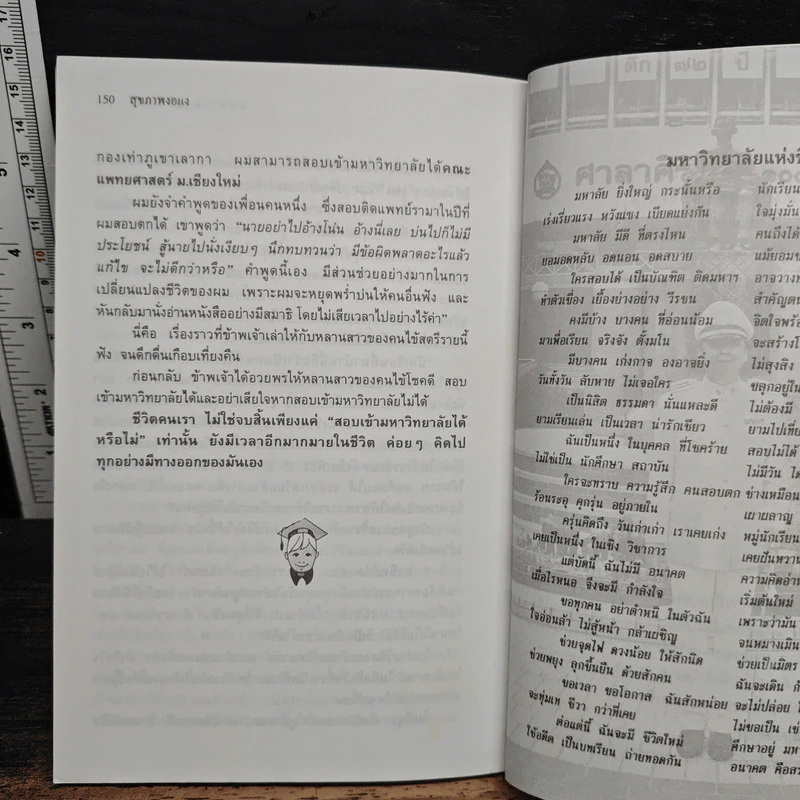 150 สุขภาพงอแง
กองเท่าภูเขาเลากา ผมสามารถสอบเข้ามหาวิทยาลัยได้คณะ
แพทยศาสตร์ ม.เชียงใหม่
ผมยังจำคำพูดของเพื่อนคนหนึ่ง ซึ่งสอบติดแพทย์รามาในปีที่
ผมสอบตกได้ เขาพูดว่า “นายอย่าไปอ้างโน่น อ้างนี่เลย บ่นไปก็ไม่มี
ประโยชน์ สู้นายไปนั่งเงียบๆ นึกทบทวนว่า มีข้อผิดพลาดอะไรแล้ว
แก้ไข จะไม่ดีกว่าหรือ” คำพูดนี้เอง มีส่วนช่วยอย่างมากในการ
เปลี่ยนแปลงชีวิตของผม เพราะผมจะหยุดพร่ำบ่นให้คนอื่นฟัง และ
หันกลับมานั่งอ่านหนังสืออย่างมีสมาธิ โดยไม่เสียเวลาไปอย่างไร้ค่า”
นี่คือ เรื่องราวที่ข้าพเจ้าเล่าให้กับหลานสาวของคนไข้สตรีรายนี้
ฟัง จนดึกดื่นเกือบเที่ยงคืน
ก่อนกลับ ข้าพเจ้าได้อวยพรให้หลานสาวของคนไข้โชคดี สอบ
เข้ามหาวิทยาลัยได้และอย่าเสียใจหากสอบเข้ามหาวิทยาลัยไม่ได้
ชีวิตคนเรา ไม่ใช่จบสิ้นเพียงแค่ “สอบเข้ามหาวิทยาลัยได้
หรือไม่” เท่านั้น ยังมีเวลาอีกมากมายในชีวิต ค่อยๆ คิดไป
ทุกอย่างมีทางออกของมันเอง
ตึก ๗๒ ปี
มหาวิทยาลัยแห่งชี
มหาลัย ยิ่งใหญ่ กระนั้นหรือ
เร่งเรี่ยวแรง หวังแซง เบียดแย่งกัน
มหาลัย มีดี ที่ตรงไหน
ยอมอดหลับ อดนอน อดสบาย
ใครสอบได้ เป็นบัณฑิต ติดมหาฯ
ทำตัวเขื่อง เยื้องย่างอย่าง วีรชน
คงมีบ้าง บางคน ที่อ่อนน้อม
มาเพื่อเรียน จริงจัง ตั้งมโน
มีบางคน เก่งกาจ องอาจยิ่ง
วันทั้งวัน ลับหาย ไม่เจอใคร
เป็นนิสิต ธรรมดา นั่นแหละดี
ยามเรียนเล่น เป็นเวลา น่ารักเขียว
ฉันเป็นหนึ่ง ในบุคคล ที่โชคร้าย
ไม่ใช่เป็น นักศึกษา สถาบัน
ใครจะทราบ ความรู้สึก คนสอบตก
ร้อนระอุ คุกรุ่น อยู่ภายใน
ครุ่นคิดถึง วันเก่าเก่า เราเคยเก่ง
เคยเป็นหนึ่ง ในเชิง วิชาการ
แต่บัดนี้ ฉันไม่มี อนาคต
เมื่อไรหนอ จึงจะมี กำลังใจ
ขอทุกคน อย่าตำหนิ ในตัวฉัน
ใจอ่อนล้า ไม่สู้หน้า กล้าเผชิญ
ช่วยจุดไฟ ดวงน้อย ให้สักนิด
ช่วยพยุง ลุกขึ้นยืน ด้วยสักคน
ขอเวลา ขอโอกาส ฉันสักหน่อย
จะทุ่มเท ชีวา กว่าที่เคย
ต่อแต่นี้ ฉันจะมี ชีวิตใหม่
ใช้อดีต เป็นบทเรียน ถ่ายทอดกัน
นักเรียน
ใจมุ่งมั่น
คนถึงได้
แม้ยอม
อาจวาง
สำคัญ
จิตใจพร้อ
จะสร้าง
ไม่สุงสิง
ขลุกอยู่ใน
ไม่ต้องมี
ยามไปเที่ย
สอบไม่ได้
ไม่มีวัน
ช่างเหมือน
เผาผลาญ
หมู่นักเรียน
เคยฝันหวาน
ความคิดอ่าน
เริ่มต้นใหม่
เพราะว่ามัน
จนหมางเมิน
ช่วยเป็นมิตร
ฉันจะเดิน
จะไม่ปล่อย
ไม่ขอเป็น
ศึกษาอยู่
อนาคต